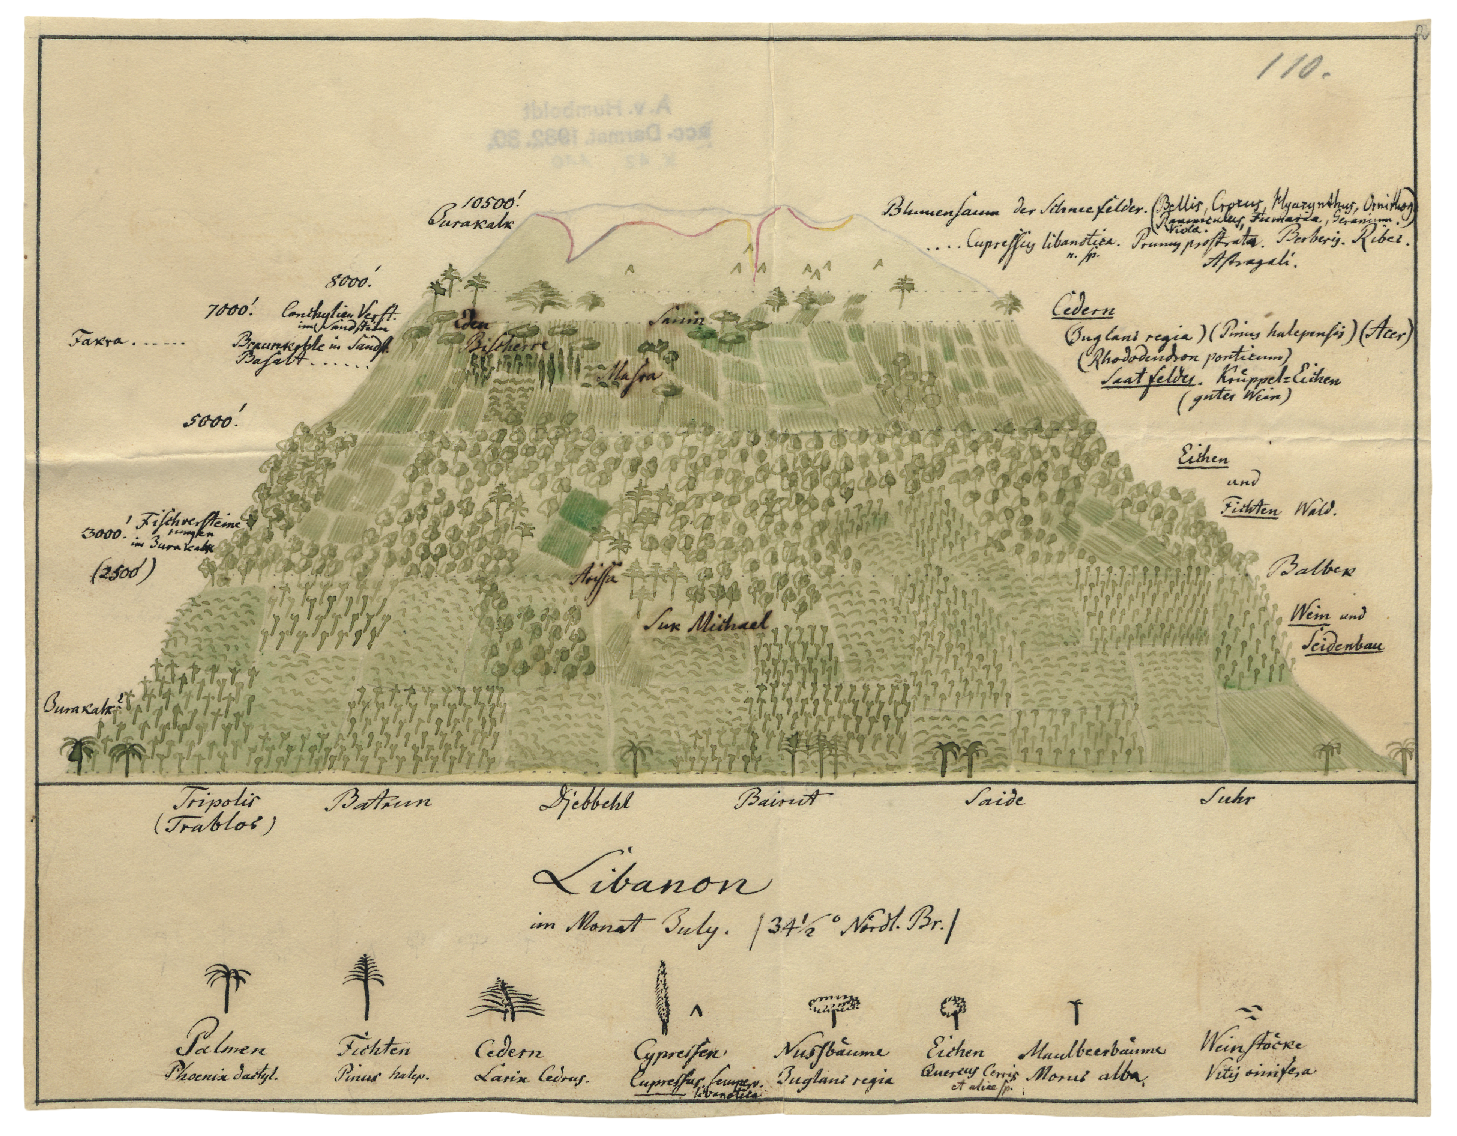 110.
A. v. Humboldt
acc. Darmst. 1932. 30.
10500'
Jurakalk
Blumensaum der Schneefelder. (Bellis, Crocus, Hyazynthus, Ornithog.
Ranunculus, Fumaria, Geranium.
Viola.
.... Cupressus libanotica. Prunus prostrata. Berberis. Ribes.
n. sp.
Astragali.
8000'
7000'. Conchylien Verst.
im Sandstein
Fakra ...... Braunkohle in Sandst.
Basalt ......
Eden
Bischerre
Sanin
Masra
Cedern
(Juglans regia) (Pinus halepensis) (Acer)
(Rhododendron ponticum)
Saatfelder. Krüppel=Eichen
(guter Wein)
5000'
Eichen
und
Fichten Wald.
3000' Fischversteine
rungen
im Jurakalk
(2500')
Arissa
Suk Michael
Balbek
Wein und
Seidenbau
Jurakalk?
Tripolis
(Trablos)
Batrun
Djebbehl
Bairut
Saide
Suhr
Libanon
im Monat July. (34½° Nördl. Br.)
Palmen
Phoenix dactyl.
Fichten
Pinus halep.
Cedern
Larix Cedrus.
Cypressen
Cupressus semperv.
libanotica
Nussbäume
Juglans regia
Eichen
Quercus Cerris
et aliae sp.
Maulbeerbäume
Morus alba
Weinstöcke
Vitis vinifera